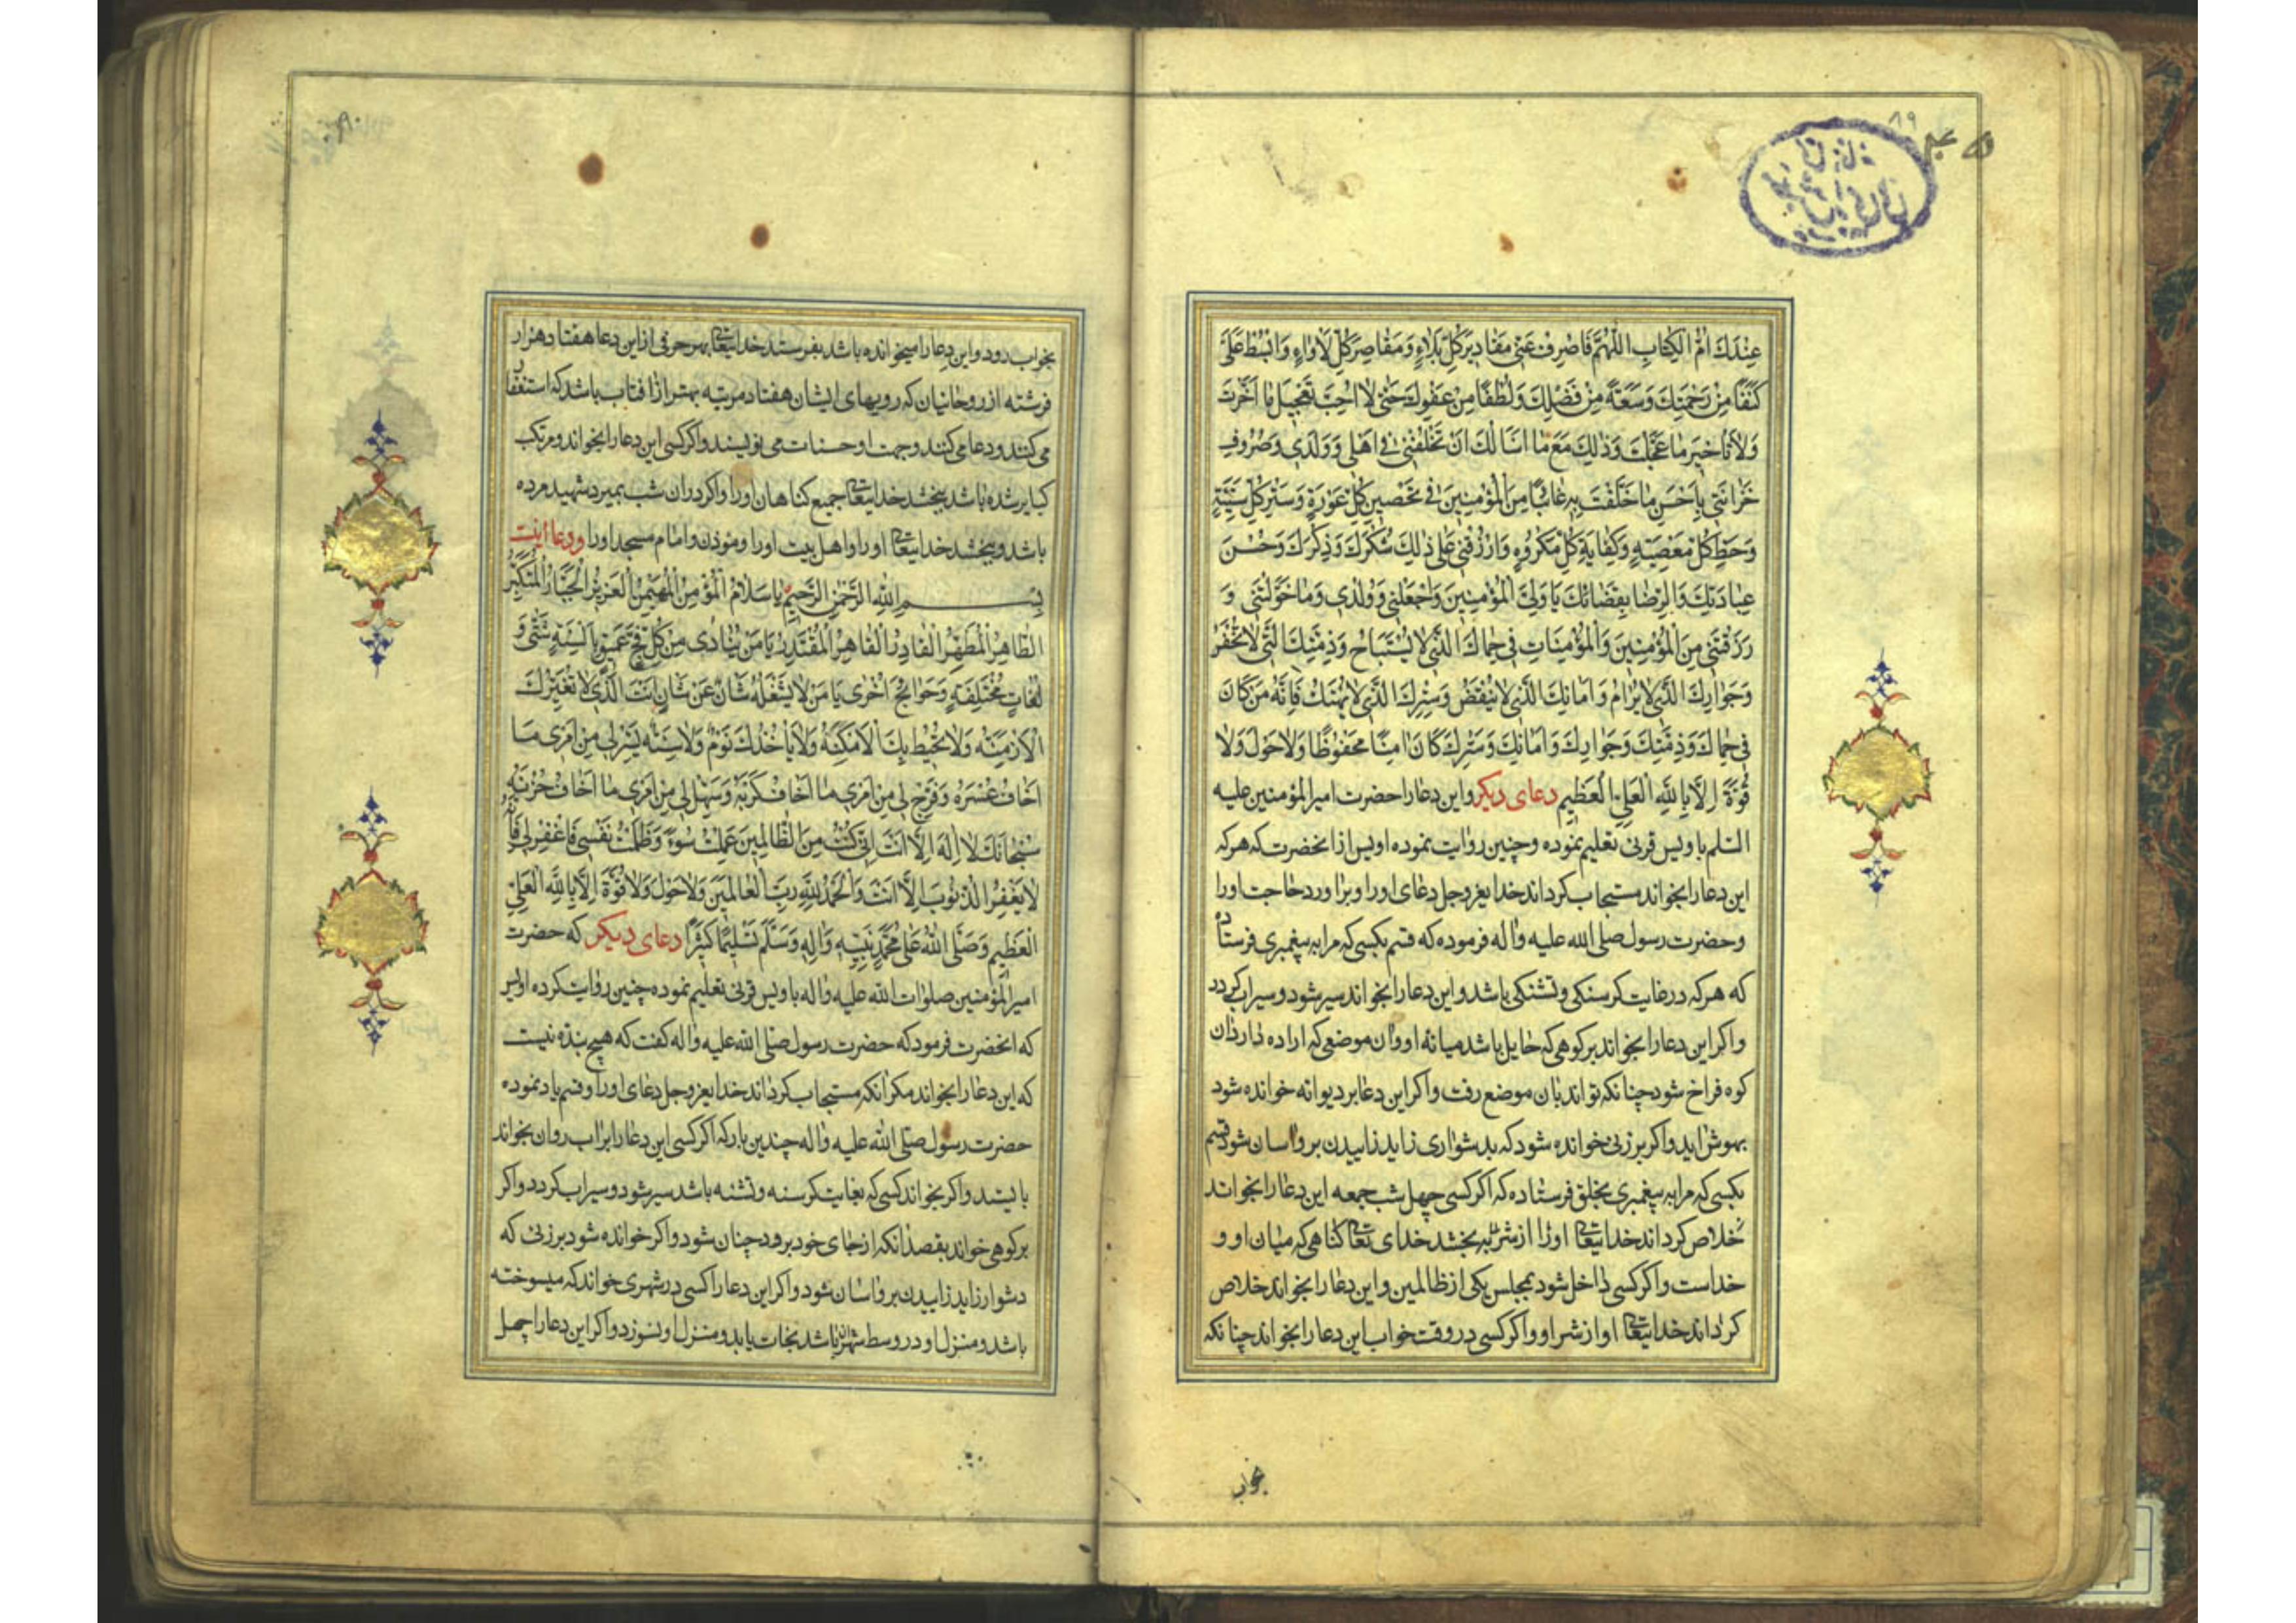 ۸۹
۴۵
عِنْدَكَ اُمُّ الْكِتابِ اللّٰهُمَّ فَاصْرِفْ عَنّي مَقاديرَ كُلِّ بَلاءٍ وَمَقاصِرَ كُلِّ لَأْواءٍ وَابْسُطْ عَلَيَّ
كَنَفًا مِنْ رَحْمَتِكَ وَسَعَةً مِنْ فَضْلِكَ وَلُطْفًا مِنْ عَفْوِكَ حَتّى لا اُحِبَّ تَعْجيلَ ما اَخَّرْتَ
وَلا تَأْخيرَ ما عَجَّلْتَ وَذلِكَ مَعَ ما اَسْاَلُكَ اَنْ تَخْلُفَني في اَهْلي وَوَلَدي وَصُرُوفِ
خَزانَتي بِاَحْسَنِ ما خَلَّفْتَ بِهِ غائِبًا مِنَ الْمُؤْمِنينَ في تَحْصينِ كُلِّ عَوْرَةٍ وَسَتْرِ كُلِّ سَيِّئَةٍ
وَحَطِّ كُلِّ مَعْصِيَةٍ وَكِفايَةِ كُلِّ مَكْرُوهٍ وَارْزُقْني عَلى ذلِكَ شُكْرَكَ وَذِكْرَكَ وَحُسْنَ
عِبادَتِكَ وَالرِّضا بِقَضائِكَ يا وَلِيَّ الْمُؤْمِنينَ وَاجْعَلْني وَوُلْدي وَما خَوَّلْتَني وَ
رَزَقْتَني مِنَ الْمُؤْمِنينَ وَالْمُؤْمِناتِ في حِماكَ الَّذي لا يُسْتَباحُ وَذِمَّتِكَ الَّتي لا تُخْفَرُ
وَجِوارِكَ الَّذي لا يُرامُ وَاَمانِكَ الَّذي لا يُنْقَضُ وَسِتْرِكَ الَّذي لا يُهْتَكُ فَاِنَّهُ مَنْ كانَ
في حِماكَ وَذِمَّتِكَ وَجِوارِكَ وَاَمانِكَ وَسِتْرِكَ كانَ امِنًا مَحْفُوظًا وَلا حَوْلَ وَلا
قُوَّةَ اِلّا بِاللّٰهِ الْعَلِيِّ الْعَظيمِ دعای دیکر واین دعارا حضرت امیرالمؤمنین علیه
السلم باویس قرنی تعلیم نموده وچنین روایت نموده اویس ازانحضرت که هرکه
این دعارا بخواند مستجاب کرداند خدایعزوجل دعای اورا وبراورد حاجت اورا
وحضرت رسول صلی الله علیه واله فرموده که قسم بکسی که مرا به پیغمبری فرستاده
که هرکه درغایت کرسنکی وتشنکی باشد واین دعارا بخواند سیر شود وسیراب کردد
واکر این دعارا بخواند برکوهی که حایل باشد میانهٔ او وان موضعی که اراده دارد ان
کوه فراخ شود چنانکه تواند بان موضع رفت واکر این دعا بر دیوانه خوانده شود
بهوش اید واکر برزنی خوانده شود که بدشواری زاید زاییدن بر واسان شود قسم
بکسی که مرا به پیغمبری بخلق فرستاده که اکر کسی چهل شب جمعه این دعارا بخواند
خلاص کرداند خدایتعالی اورا ازشر بخشد خدای تعالی کناهی که میان او و
خداست واکر کسی داخل شود بمجلس یکی از ظالمین واین دعارا بخواند خلاص
کرداند خدایتعالی او از شر او واکر کسی دروقت خواب این دعارا بخواند چنانکه
بخواب
۹۰
بخواب رود واین دعارا میخوانده باشد بفرستد خدایتعالی بهر حرفی ازاین دعا هفتاد هزار
فرشته از روحانیان که رویهای ایشان هفتاد مرتبه بهتر از افتاب باشد که استغفار
می کنند ودعا می کنند وجهت او حسنات می نویسند واکر کسی این دعارا بخواند ومرتکب
کبایر شده باشد ببخشد خدایتعالی جمیع کناهان اورا واکر دران شب بمیرد شهید مرده
باشد وببخشد خدایتعالی اورا واهل بیت اورا وموذن وامام مسجد اورا ودعا اینست
بِسْمِ اللهِ الرَّحْمٰنِ الرَّحيمِ يا سَلامُ الْمُؤْمِنُ الْمُهَيْمِنُ الْعَزيزُ الْجَبّارُ الْمُتَكَبِّرُ
الطّاهِرُ الْمُطَهِّرُ الْقادِرُ الْقاهِرُ الْمُقْتَدِرُ يا مَنْ يُنادى مِنْ كُلِّ فَجٍّ عَميقٍ بِاَلْسِنَةٍ شَتّى وَ
لُغاتٍ مُخْتَلِفَةٍ وَحَوائِجَ اُخْرى يا مَنْ لا يَشْغَلُهُ شَأْنٌ عَنْ شَأْنٍ اَنْتَ الَّذي لا تُغَيِّرُكَ
الْاَزْمِنَةُ وَلا تُحيطُ بِكَ الْاَمْكِنَةُ وَلا يَأْخُذُكَ نَوْمٌ وَلا سِنَةٌ يَسِّرْ لي مِنْ اَمْري ما
اَخافُ عُسْرَهُ وَفَرِّجْ لي مِنْ اَمْري ما اَخافُ كَرْبَهُ وَسَهِّلْ لي مِنْ اَمْري ما اَخافُ حُزْنَهُ
سُبْحانَكَ لا اِلهَ اِلّا اَنْتَ اِنّي كُنْتُ مِنَ الظّالِمينَ عَمِلْتُ سُوءً وَظَلَمْتُ نَفْسي فَاغْفِرْ لي فَاِنَّهُ
لا يَغْفِرُ الذُّنُوبَ اِلّا اَنْتَ وَالْحَمْدُ لِلّٰهِ رَبِّ الْعالَمينَ وَلا حَوْلَ وَلا قُوَّةَ اِلّا بِاللّٰهِ الْعَلِيِّ
الْعَظيمِ وَصَلَّى اللهُ عَلى مُحَمَّدٍ نَبِيِّهِ وَالِهِ وَسَلَّمَ تَسْليمًا كَثيرًا دعای دیکر که حضرت
امیرالمؤمنین صلوات الله علیه واله باویس قرنی تعلیم نموده چنین روایت کرده اویس
که انحضرت فرمود که حضرت رسول صلی الله علیه واله کفت که هیچ بنده نیست
که این دعارا بخواند مکر انکه مستجاب کرداند خدایعزوجل دعای اورا وقسم یاد نموده
حضرت رسول صلی الله علیه واله چندین بار که اکر کسی این دعارا براب روان بخواند
بایستد واکر بخواند کسی که بغایت کرسنه وتشنه باشد سیر شود وسیراب کردد واکر
برکوهی خواند بقصد انکه ازجای خود برود چنان شود واکر خوانده شود برزنی که
دشوار زاید زاییدن بر واسان شود واکر این دعارا کسی درشهری خواند که میسوخته
باشد ومنزل او در وسط شهر باشد نجات یابد ومنزل او نسوزد واکر این دعارا چهل